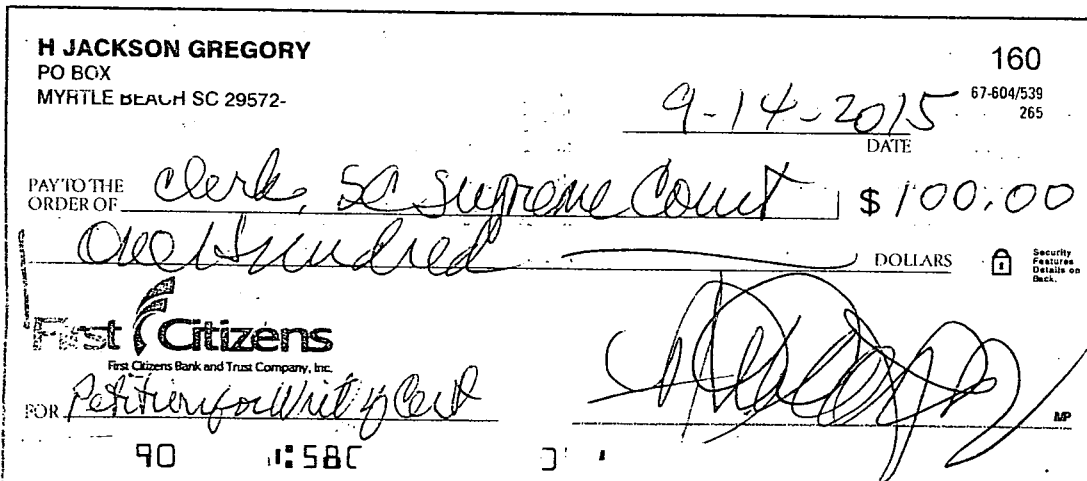 H JACKSON GREGORY
160
PO BOX
MYRTLE BEACH SC 29572-
67-604/539
265
9-14-2015
DATE
PAY TO THE ORDER OF Clerk, SC Supreme Court $ 100.00
One Hundred DOLLARS
Security Features Details on Back.
First Citizens
First Citizens Bank and Trust Company, Inc.
FOR Petition for Writ of Cert
MP
90 ⑆58